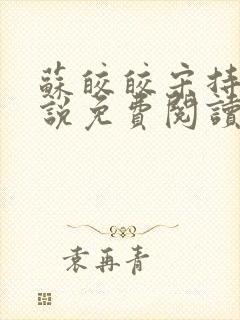 蘇皎皎宋持
說免費閱讀
袁再青